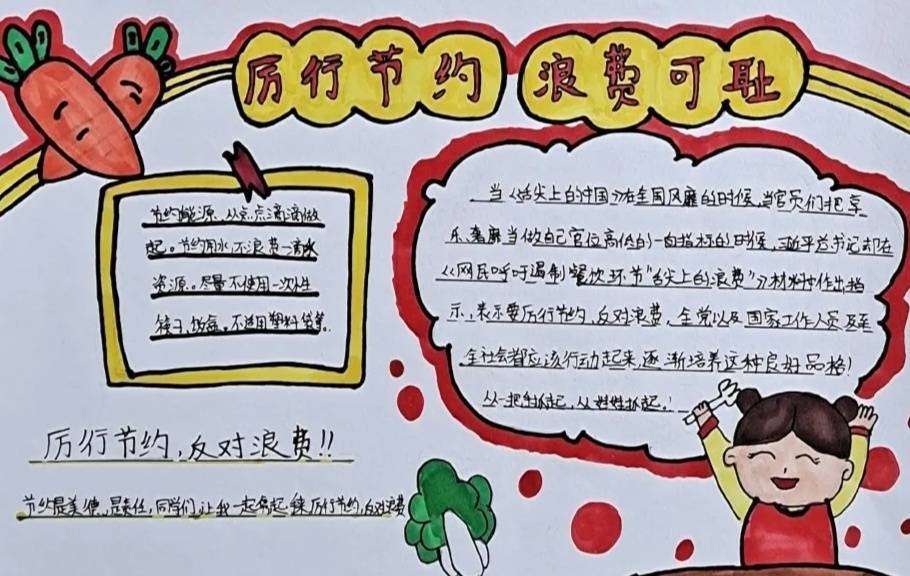 厉行节约 浪费可耻
节约能源、从点点滴滴做
起。节约用水不浪费一滴水
资源。尽量不使用一次性
筷子，饭盒。不适用塑料袋等
当《舌尖上的中国》在全国风靡的时候，当官员们把享
乐、奢靡当做自己官位高低的一向指标的时候，习近平总书记却在
《网民呼吁遏制餐饮环节"舌尖上的浪费"》材料中作出指
示，表示要厉行节约，反对浪费，全党以及国家工作人员及至
全社会都应该行动起来，逐渐培养这种良好品格！
从一把手抓起，从娃娃抓起。
厉行节约，反对浪费!!
节约是美德，是责任，同学们，让我们一起 厉行节约，反对浪费